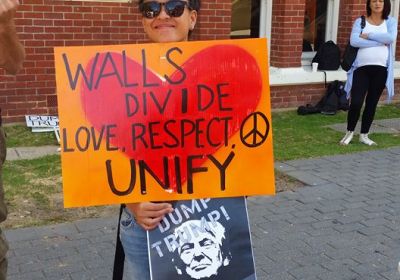 WALLS
DIVIDE
LOVE, RESPECT,
UNIFY
DUMP
TRUMP!